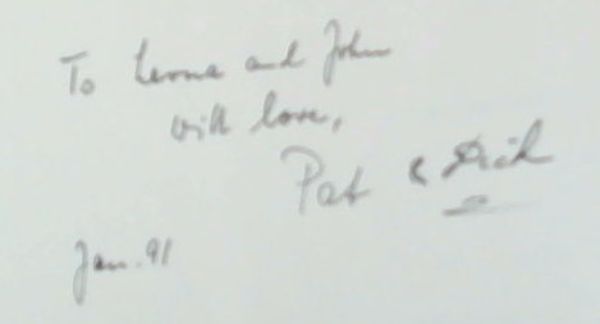 To Leona and John
with love,
Pat & Dick
Jan. 91